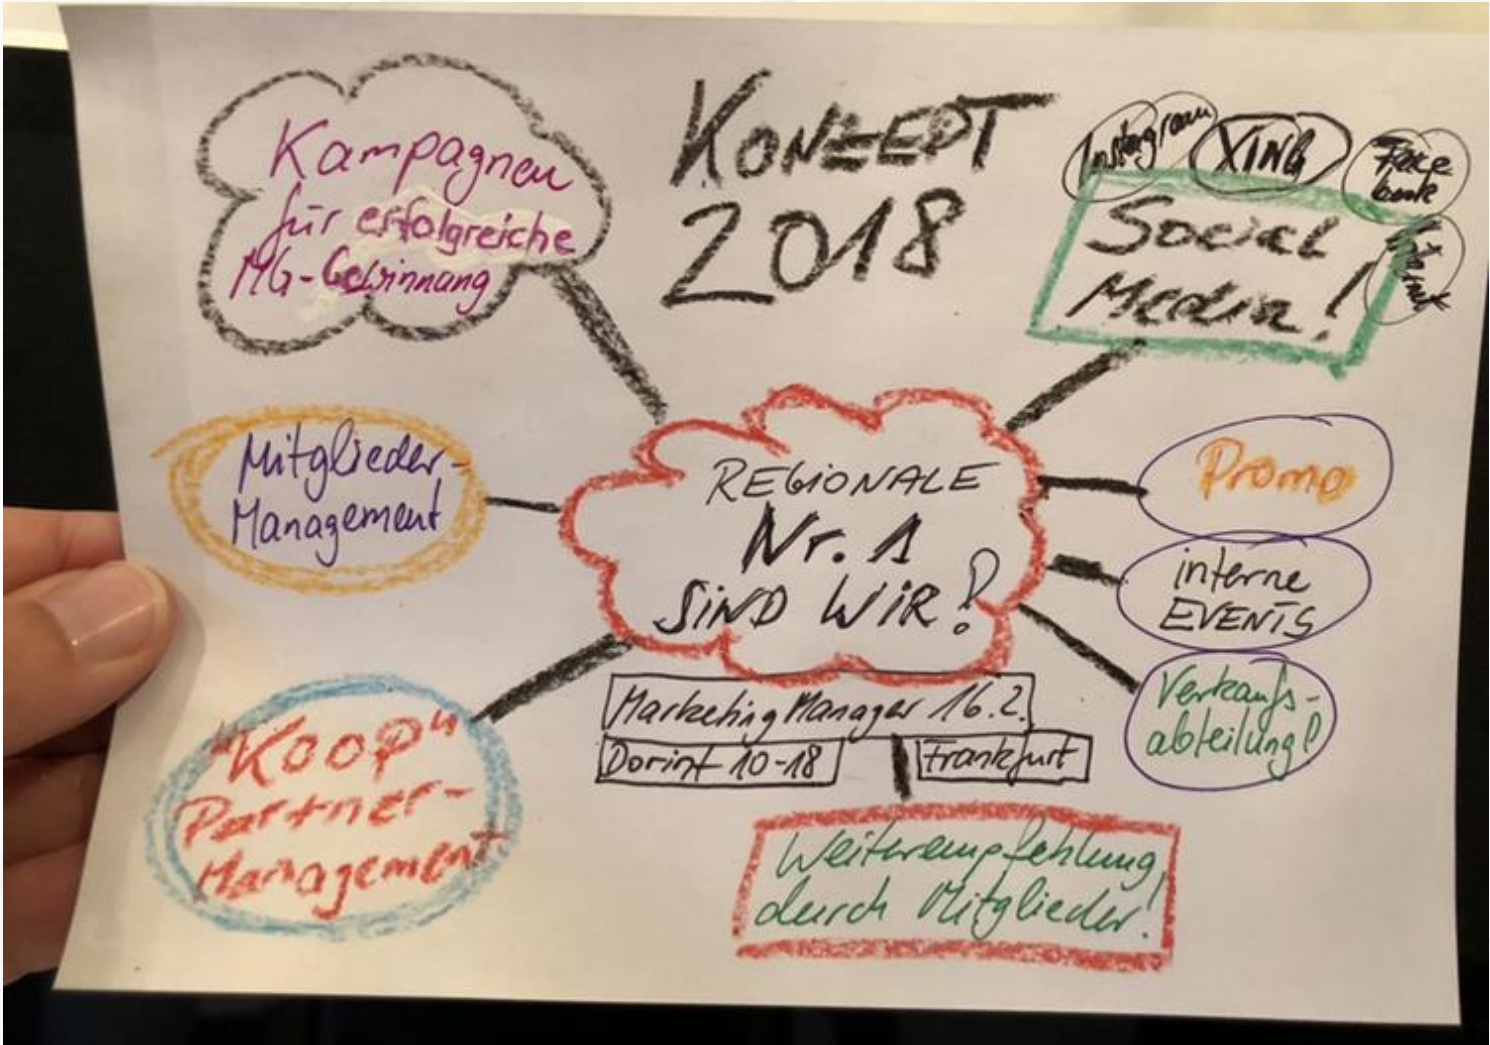 KONZEPT
2018
Kampagnen
für erfolgreiche
MG-Gewinnung
Instagram
XING
Face
book
Social
Media!
Mitglieder-
Management
REGIONALE
Nr. 1
SIND WIR!
Promo
interne
EVENTS
Verkaufs-
abteilung!
"KOOP"
Partner-
Management
Marketing Manager 16.2.
Dorint 10-18
Frankfurt
Weiterempfehlung
durch Mitglieder!